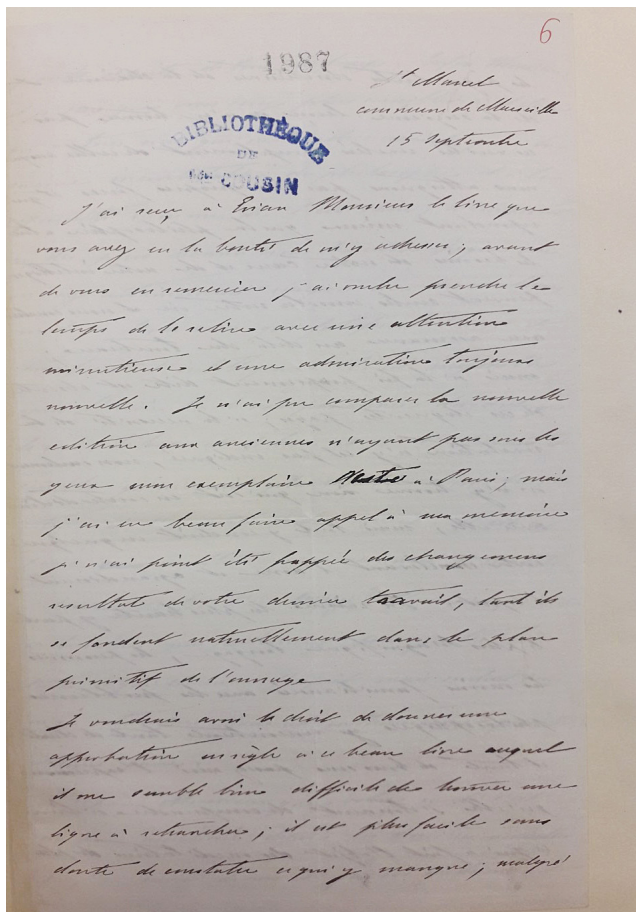 6
1987
St Marcel
commune de Marseille
15 septembre
BIBLIOTHÈQUE
DE
COUSIN
J'ai reçu à Evian Monsieur le livre que
vous avez eu la bonté de m'y adresser ; avant
de vous en remercier j'ai voulu prendre le
temps de le relire avec une attention
minutieuse et une admiration toujours
nouvelle. Je n'ai pu comparer la nouvelle
edition aux anciennes n'ayant pas sous les
yeux mon exemplaire resté à Paris ; mais
j'ai eu beau faire appel à ma mémoire
je n'ai point été frappée des changemens
resultat de votre dernier travail, tant ils
se fondent naturellement dans le plan
primitif de l'ouvrage
Je voudrais avoir le droit de donner une
approbation en règle à ce beau livre auquel
il me semble bien difficile de trouver une
ligne à retrancher ; il est plus facile sans
doute de constater ce qui y manque ; malgré